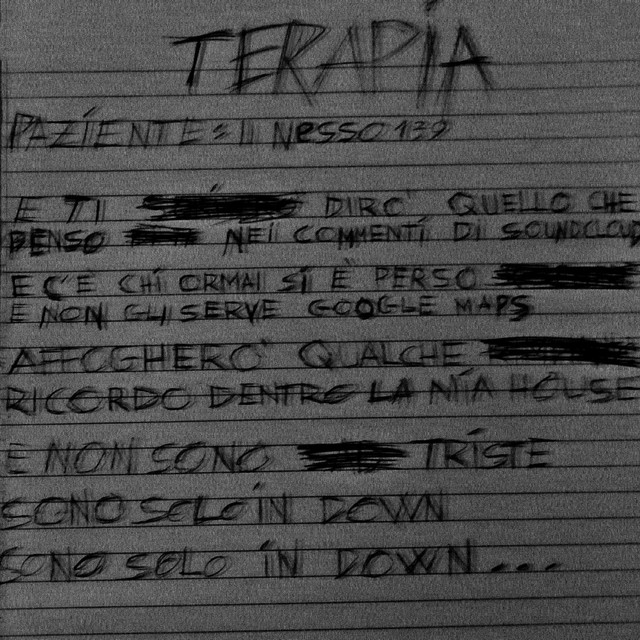 TERAPIA
PAZIENTE: IL NESSO 139
E TI DIRO' QUELLO CHE
PENSO NEI COMMENTI DI SOUNDCLOUD
E C'È CHI ORMAI SI È PERSO
E NON GLI SERVE GOOGLE MAPS
AFFOGHERO' QUALCHE
RICORDO DENTRO LA MIA HOUSE
E NON SONO TRISTE
SONO SOLO IN DOWN
SONO SOLO IN DOWN...